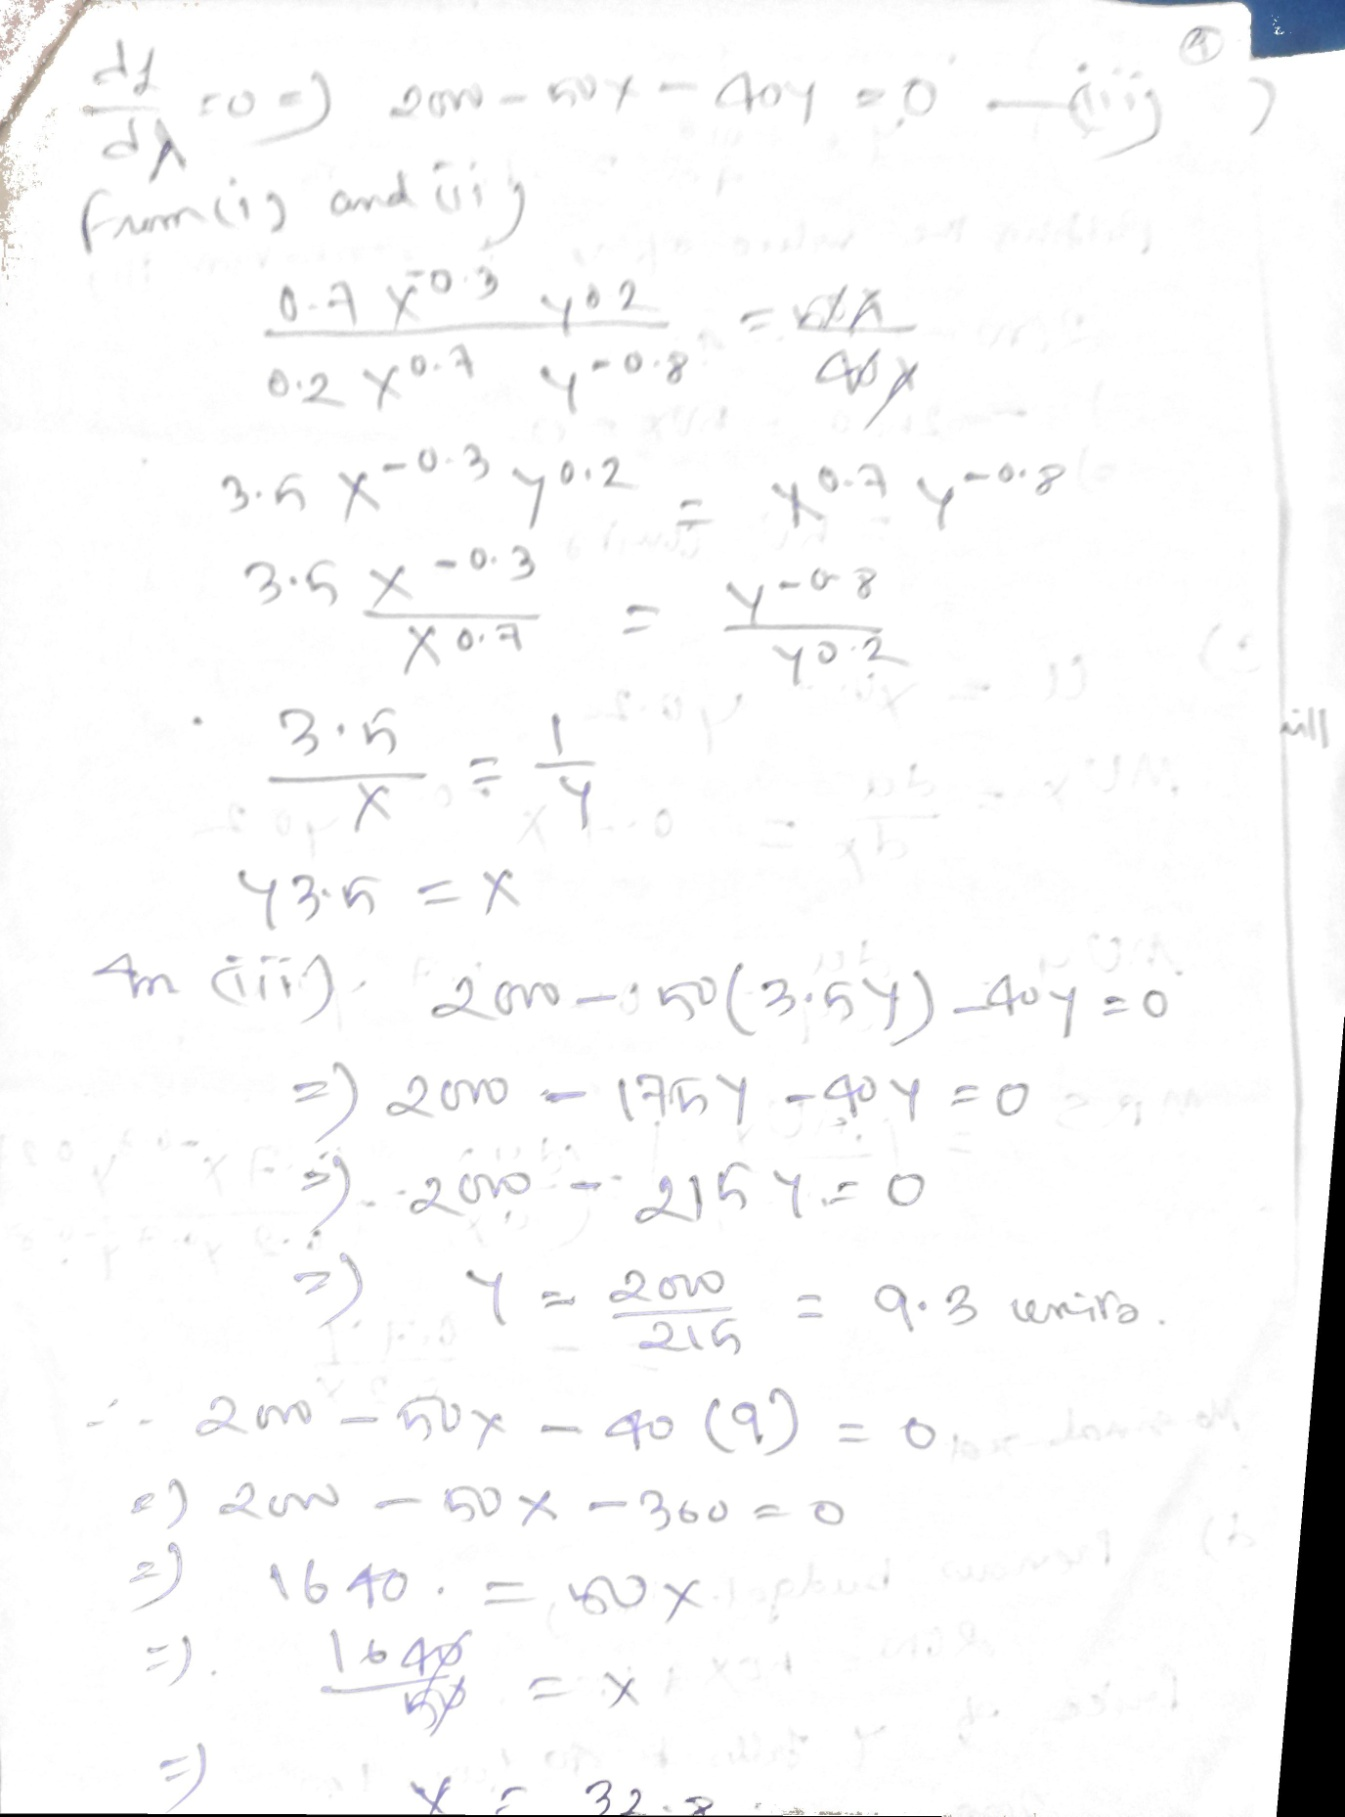 ④
dL/dλ = 0 => 2000 - 50x - 40y = 0 — (iii)
from (i) and (ii)
0.7 x^-0.3 y^0.2 / 0.2 x^0.7 y^-0.8 =
3.5 x^-0.3 y^0.2 = x^0.7 y^-0.8
3.5 x^-0.3 / x^0.7 = y^-0.8 / y^0.2
3.5 / x = 1 / y
y3.5 = x
In (iii). 2000 - 50(3.5y) - 40y = 0
=> 2000 - 175y - 40y = 0
=> 2000 - 215y = 0
=> y = 2000 / 215 = 9.3 units.
∴ 2000 - 50x - 40(9) = 0
=> 2000 - 50x - 360 = 0
=> 1640. = 50x
=>. 1640 / 50 = x
=> x = 32.8